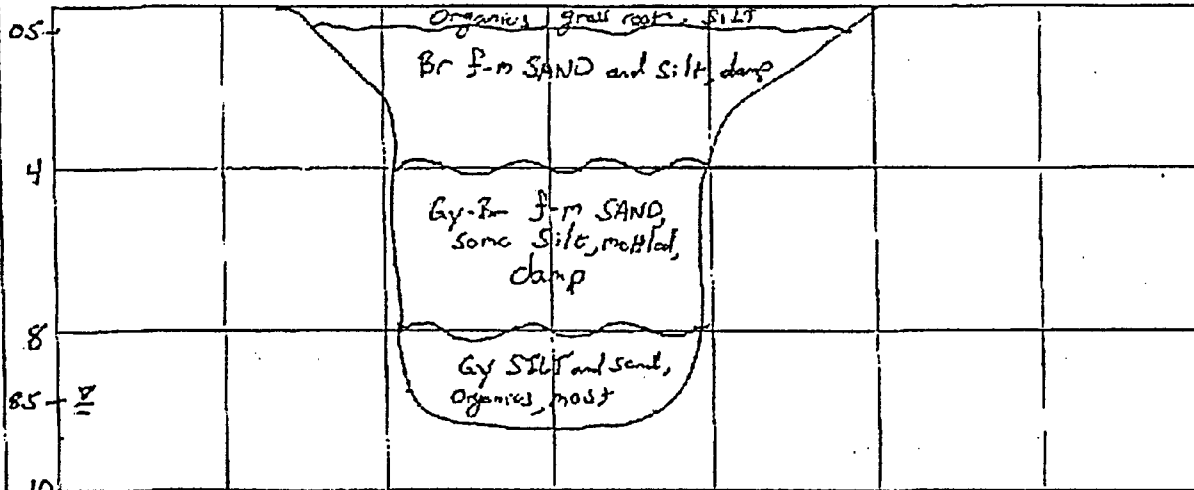 Organics, grass roots, SILT
05
Br f-m SAND and Silt, damp
4
Gy-Br f-m SAND,
some Silt, mottled,
damp
8
Gy SILT and sand,
Organics, moist
85
10